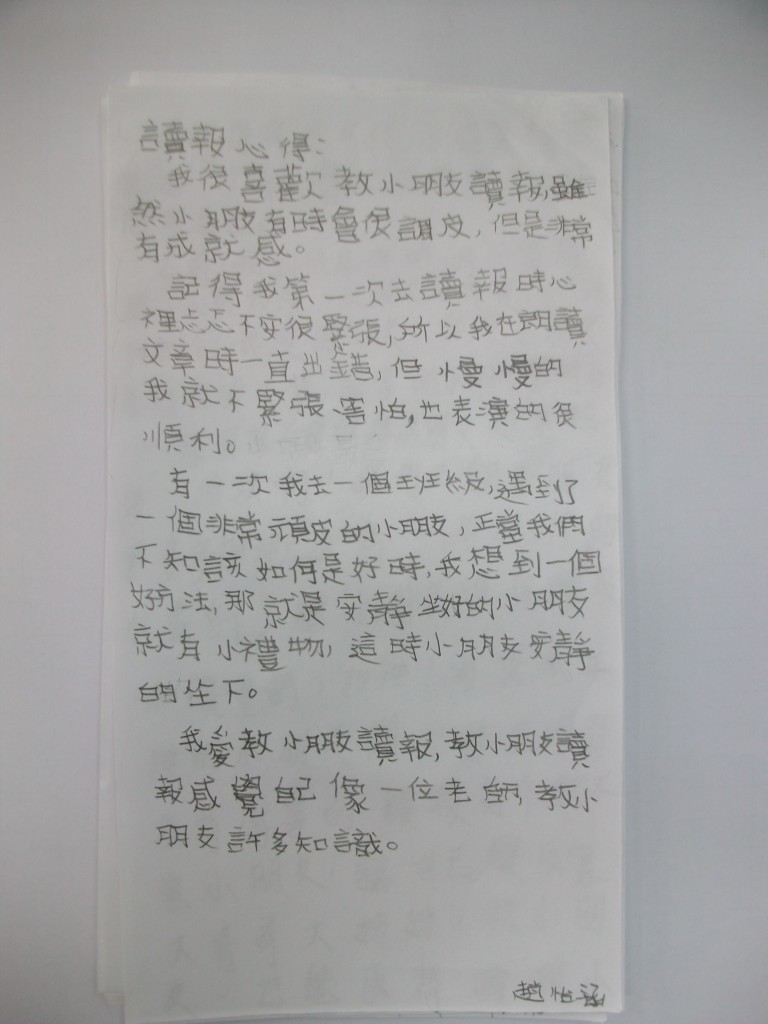 讀報心得:
我很喜歡教小朋友讀報,雖
然小朋友有時會很調皮,但是非常
有成就感。
記得我第一次去讀報時心
裡忐忑不安很緊張,所以我在朗讀
文章時一直出錯,但慢慢的
我就不緊張、害怕,也表演的很
順利。
有一次我去一個班級,遇到了
一個非常頑皮的小朋友,正當我們
不知該如何是好時,我想到一個
好方法,那就是安靜坐好的小朋友
就有小禮物,這時小朋友安靜
的坐下。
我愛教小朋友讀報,教小朋友讀
報感覺自己像一位老師,教小
朋友許多知識。
趙怡涵